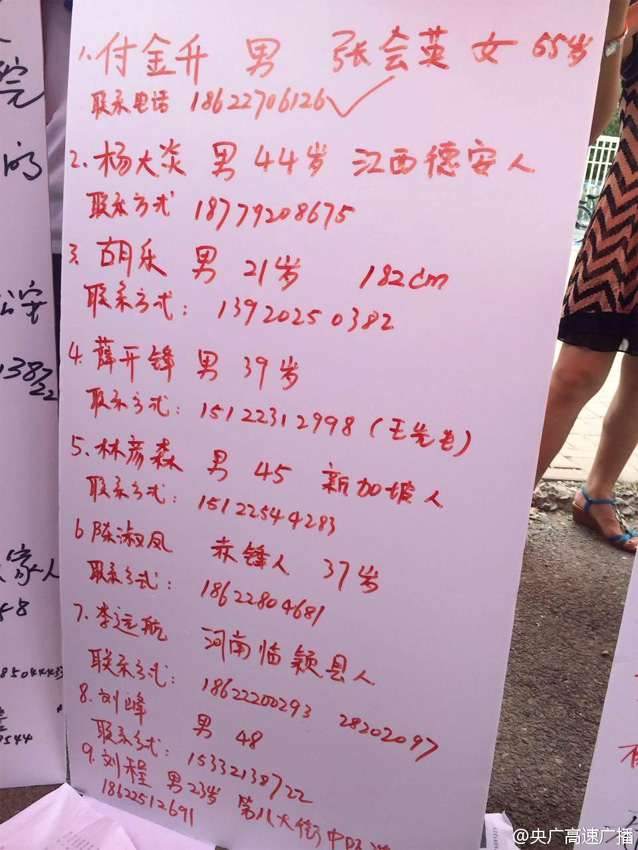 1. 付金升 男 张会英 女 65岁
联系电话 18622706126✓
2. 杨大炎 男 44岁 江西德安人
联系方式 18779208675
3. 胡乐 男 21岁 182cm
联系方式: 13920250382
4. 薛开锋 男 39岁
联系方式: 15122312998 (王先生)
5. 林彦森 男 45 新加坡人
联系方式: 15122544283
6 陈淑凤 赤锋人 37岁
联系方式: 18622804681
7. 李远航 河南临颖县人
联系方式: 18622200293 28202097
8. 刘峰 男 48
联系方式: 15332138722
9. 刘程 男 23岁 第八大街中
18622512691
的
公安
家人
@央广高速广播